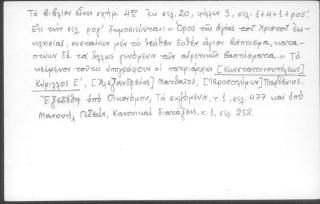 Τὸ βιβλίον εἶναι σχήμ. 4ον ἐκ σελ. 20, φύλλων 3, σελ. 1+4+1+ρο5΄.
Ἐπὶ τῆς σελ. ρογ΄ δημοσιεύεται: « Ὅρος τῆς ἁγίας τοῦ Χριστοῦ ἐκ-
κλησίας, συνιστῶν μὲν τὸ θεόθεν δοθὲν ἅγιον βάπτισμα, κατα-
πτύων δὲ τὰ ἄλλως γινόμενα τῶν αἱρετικῶν βαπτίσματα.» Τὸ
κείμενον τοῦτο ὑπογράφουν οἱ πατριάρχαι [Κωνσταντινουπόλεως]
Κύριλλος Ε΄, [Ἀλεξανδρείας] Ματθαῖος, [Ἱεροσολύμων] Παρθένιος.
Ἐξεδόθη ὑπὸ Οἰκονόμου, Τὰ σῳζόμενα, τ. 1, σελ. 477 καὶ ὑπὸ
Μανουὴλ Γεδεών, Κανονικαὶ διατάξεις, τ. 1, σελ. 252.